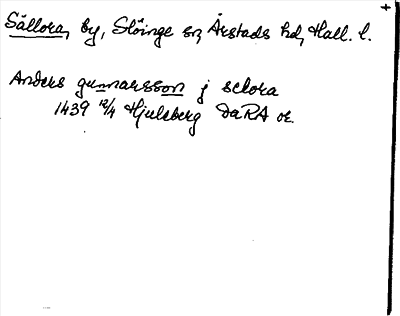 +
Sällora, by, Slöinge sn, Årstads hd, Hall. l.
Anders gunnarsson j selora
1439 12/4 Hjuleberg DaRA or.